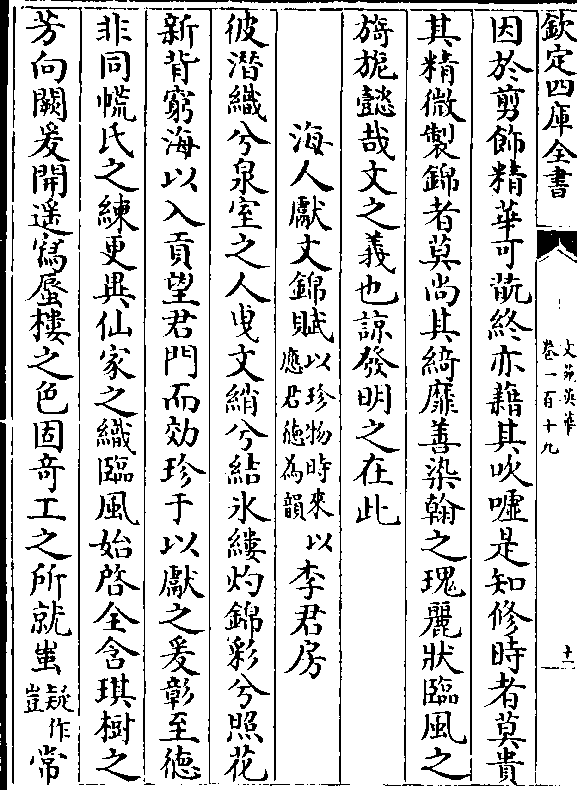 欽定四庫全書
文苑英華
卷一百十九
十一
因於剪飾精華可翫終亦藉其吹嘘是知修時者莫貴
其精微製錦者莫尚其綺靡善染翰之瑰麗狀臨風之
旖旎懿哉文之義也諒發明之在此
海人獻文錦賦以珍物時來應君德為韻 以 李君房
彼潛織兮泉室之人曳文綃兮結氷縷灼錦彩兮照花
新背窮海以入貢望君門而効珍于以獻之爰彰至德
非同㡆氏之練更異仙家之織臨風始啓全含琪樹之
芳向闕爰開遥寫蜃樓之色固奇工之所就蚩疑作豈常